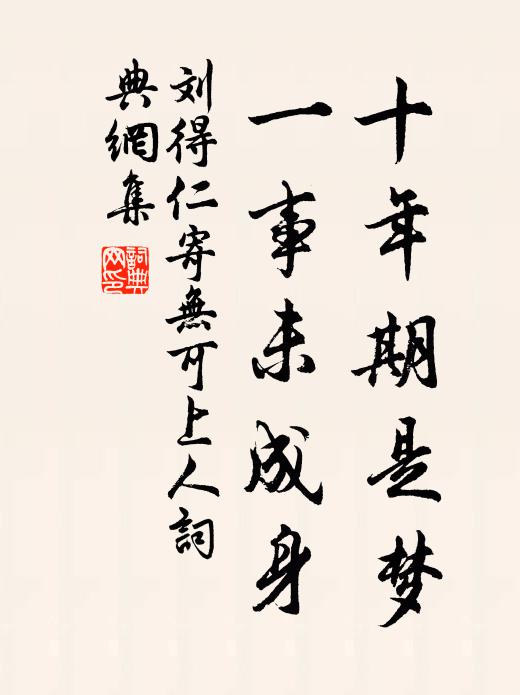 十年期是梦
一事未成身
刘得仁寄無可上人詞
典網集
詞典
网印